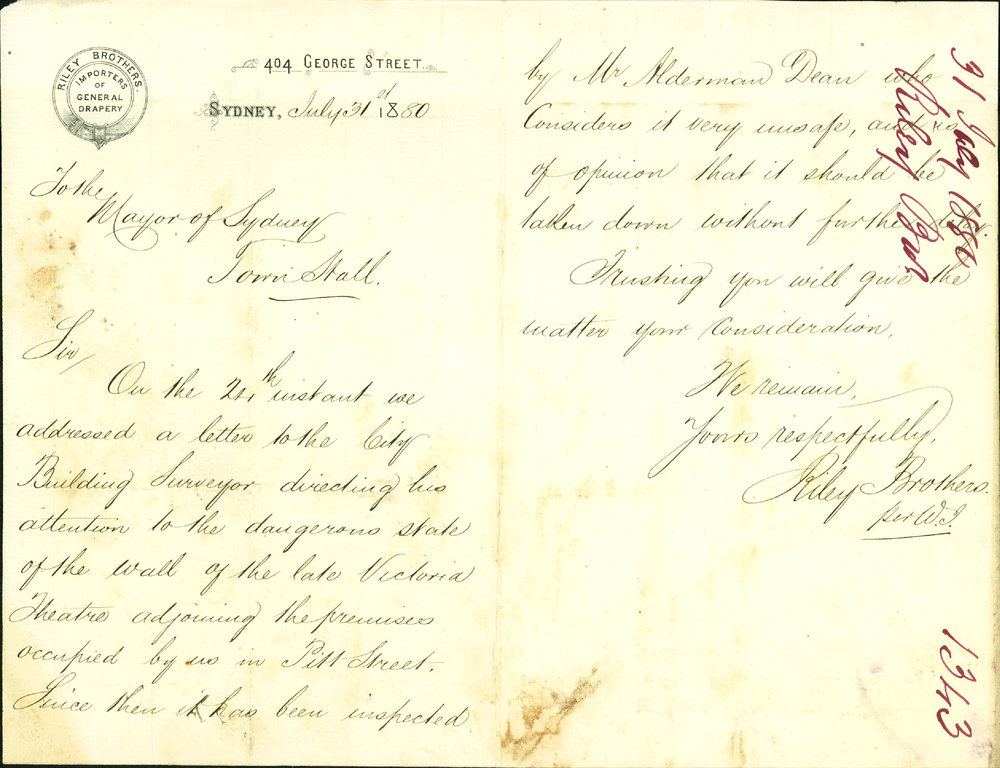 RILEY BROTHERS.
IMPORTERS
OF
GENERAL
DRAPERY
404 GEORGE STREET.
SYDNEY, July 31st 1880
To the
Mayor of Sydney
Town Hall.
Sir,
On the 24th instant we
addressed a letter to the City
Building Surveyor directing his
attention to the dangerous state
of the wall of the late Victoria
Theatre adjoining the premises
occupied by us in Pitt Street.
Since then it has been inspected
by Mr Alderman Dean who
Considers it very unsafe, and is
of opinion that it should be
taken down without further delay.
Trusting you will give the
matter your Consideration,
We remain,
Yours respectfully,
Riley Brothers.
per W.J.
31 July 1880
Riley Bros
1343